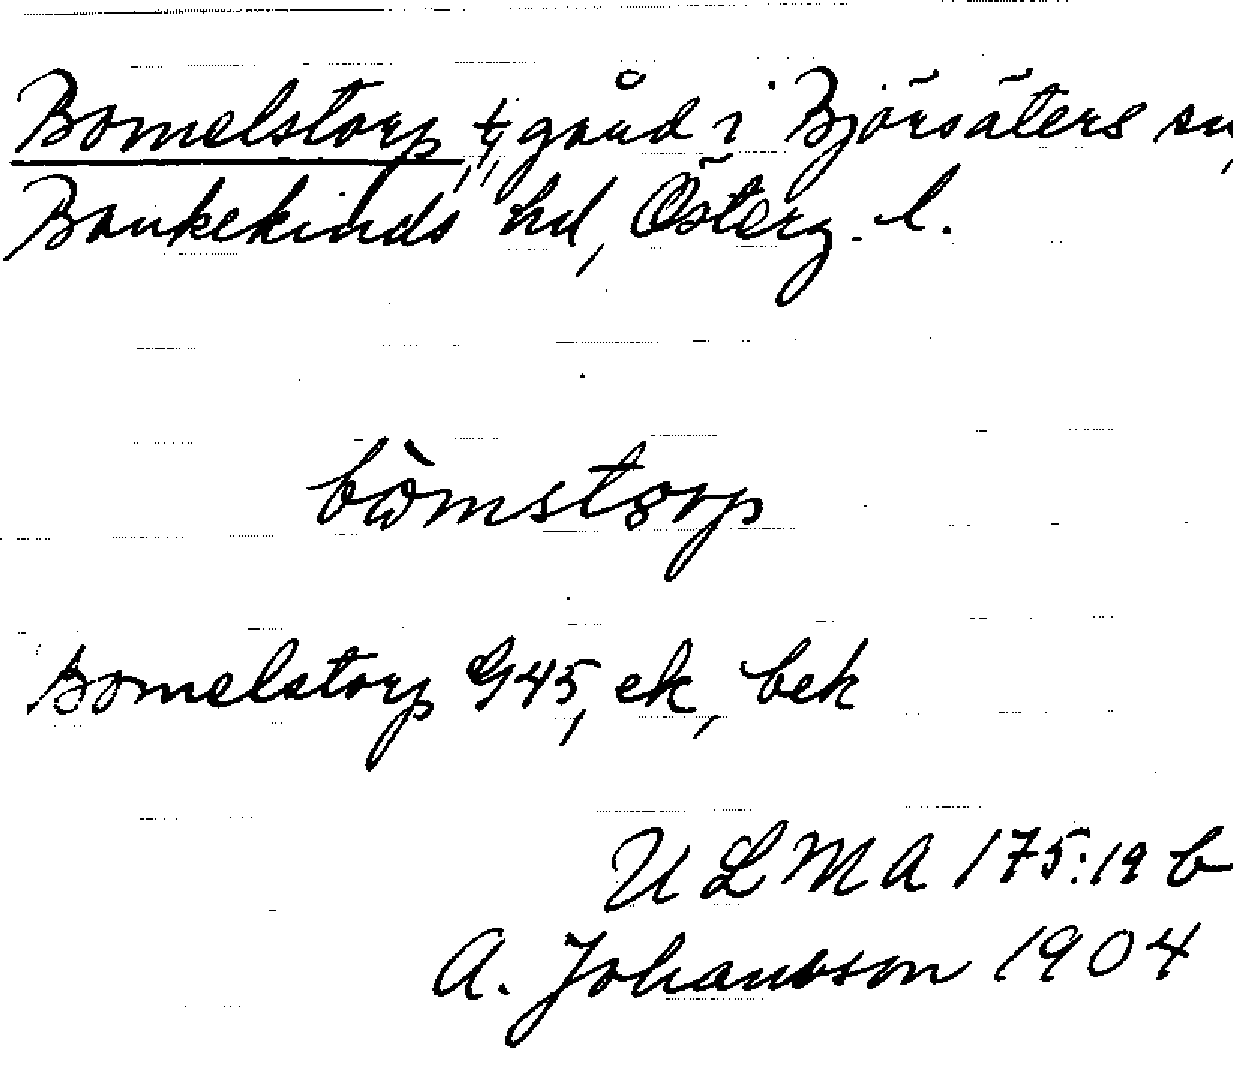 Bomelstorp ‡, gård i Björsäters sn,
Bankekinds hd, Österg. l.
bὼmstrop
Bomelstorp G45, ek, bek
ULMA 175:19 b
A. Johansson 1904